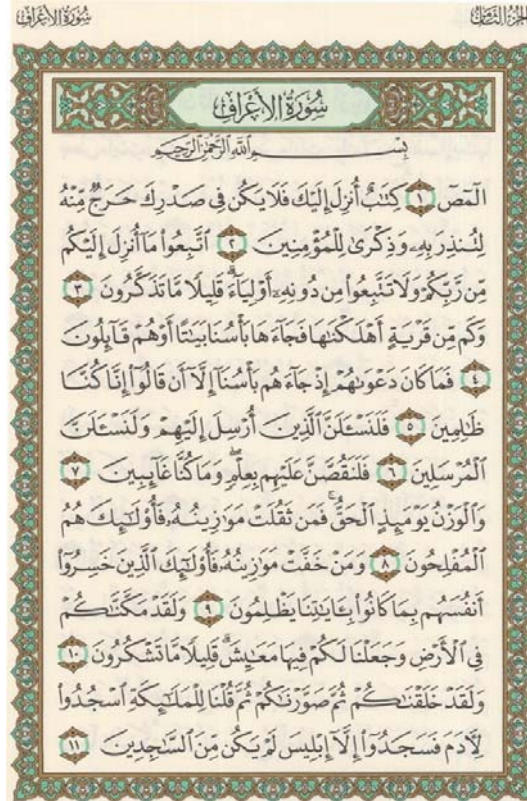 الجزء الثامن
سورة الأعراف
سُورَةُ الأَعْرَافِ
بِسْمِ اللَّهِ الرَّحْمَٰنِ الرَّحِيمِ
الٓمٓصٓ ١ كِتَٰبٌ أُنزِلَ إِلَيْكَ فَلَا يَكُن فِى صَدْرِكَ حَرَجٌ مِّنْهُ
لِتُنذِرَ بِهِۦ وَذِكْرَىٰ لِلْمُؤْمِنِينَ ٢ ٱتَّبِعُوا۟ مَآ أُنزِلَ إِلَيْكُم
مِّن رَّبِّكُمْ وَلَا تَتَّبِعُوا۟ مِن دُونِهِۦٓ أَوْلِيَآءَ ۗ قَلِيلًا مَّا تَذَكَّرُونَ ٣
وَكَم مِّن قَرْيَةٍ أَهْلَكْنَٰهَا فَجَآءَهَا بَأْسُنَا بَيَٰتًا أَوْ هُمْ قَآئِلُونَ
٤ فَمَا كَانَ دَعْوَىٰهُمْ إِذْ جَآءَهُم بَأْسُنَآ إِلَّآ أَن قَالُوٓا۟ إِنَّا كُنَّا
ظَٰلِمِينَ ٥ فَلَنَسْـَٔلَنَّ ٱلَّذِينَ أُرْسِلَ إِلَيْهِمْ وَلَنَسْـَٔلَنَّ
ٱلْمُرْسَلِينَ ٦ فَلَنَقُصَّنَّ عَلَيْهِم بِعِلْمٍ ۖ وَمَا كُنَّا غَآئِبِينَ ٧
وَٱلْوَزْنُ يَوْمَئِذٍ ٱلْحَقُّ ۚ فَمَن ثَقُلَتْ مَوَٰزِينُهُۥ فَأُو۟لَٰٓئِكَ هُمُ
ٱلْمُفْلِحُونَ ٨ وَمَنْ خَفَّتْ مَوَٰزِينُهُۥ فَأُو۟لَٰٓئِكَ ٱلَّذِينَ خَسِرُوٓا۟
أَنفُسَهُم بِمَا كَانُوا۟ بِـَٔايَٰتِنَا يَظْلِمُونَ ٩ وَلَقَدْ مَكَّنَّٰكُمْ
فِى ٱلْأَرْضِ وَجَعَلْنَا لَكُمْ فِيهَا مَعَٰيِشَ ۗ قَلِيلًا مَّا تَشْكُرُونَ ١٠
وَلَقَدْ خَلَقْنَٰكُمْ ثُمَّ صَوَّرْنَٰكُمْ ثُمَّ قُلْنَا لِلْمَلَٰٓئِكَةِ ٱسْجُدُوا۟
لِـَٔادَمَ فَسَجَدُوٓا۟ إِلَّآ إِبْلِيسَ لَمْ يَكُن مِّنَ ٱلسَّٰجِدِينَ ١١